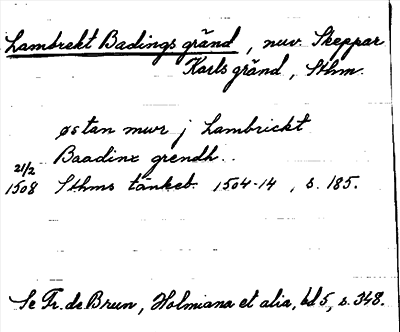 Lambrekt Badings gränd, nuv. Skeppar
Karls gränd, Sthm.
østan mwr j Lambrickt
Baadinx grendh.
21/2
1508 Sthms tänkeb. 1504-14, s. 185.
Se Fr. de Brun, Holmiana et alia, bd 5, s. 348.